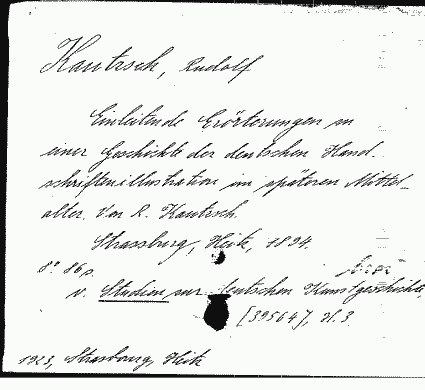 Kautzsch, Rudolf
Einleitende Erörterungen zu
einer Geschichte der deutschen Hand-
schriftenillustration im späteren Mittel-
alter. Von R. Kautzsch.
Strassburg, Heitz, 1894.
8° 86 p.
v. Studien zur deutschen Kunstgeschichte,
[39564], H. 3
1923, Strasbourg, Heitz